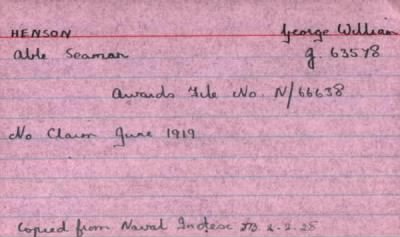 HENSON George William
Able Seaman J. 63578
Awards File No. N/66638
No Claim June 1919
Copied from Naval Index 2-2-28